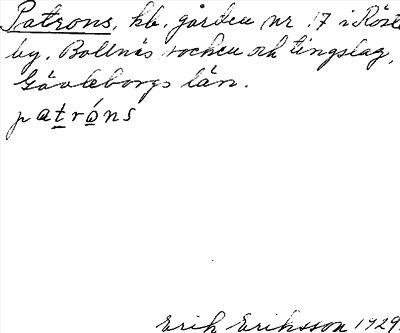 Patrons, kb. gården nr 17 i Röste
by. Bollnäs socken och tingslag,
Gävleborgs län.
patróns
Erik Eriksson 1929.